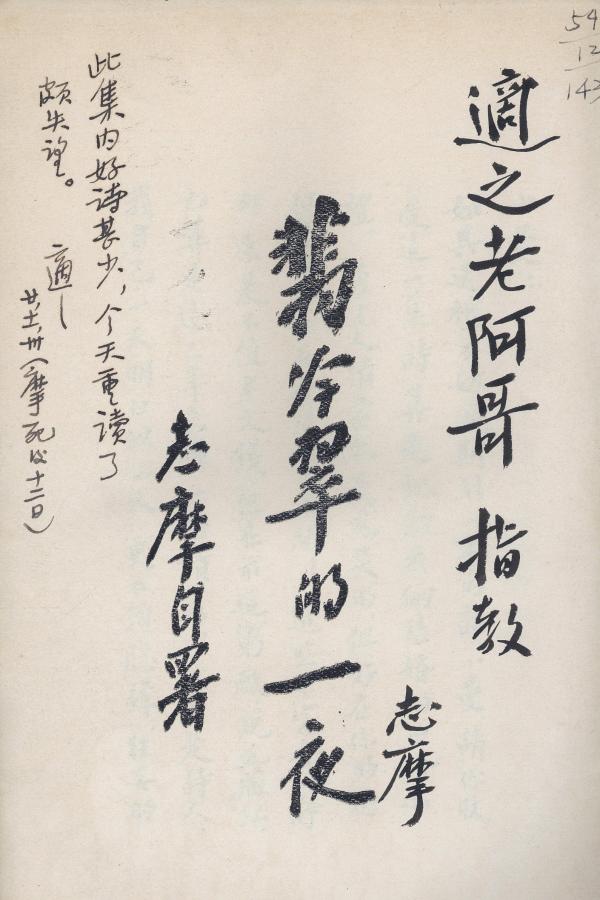 適之老阿哥 指教
志摩
翡冷翠的一夜
志摩自署
此集内好詩甚少，今天重讀了
頗失望。
適之
廿、十一、卅（摩死後十二日）
54
12